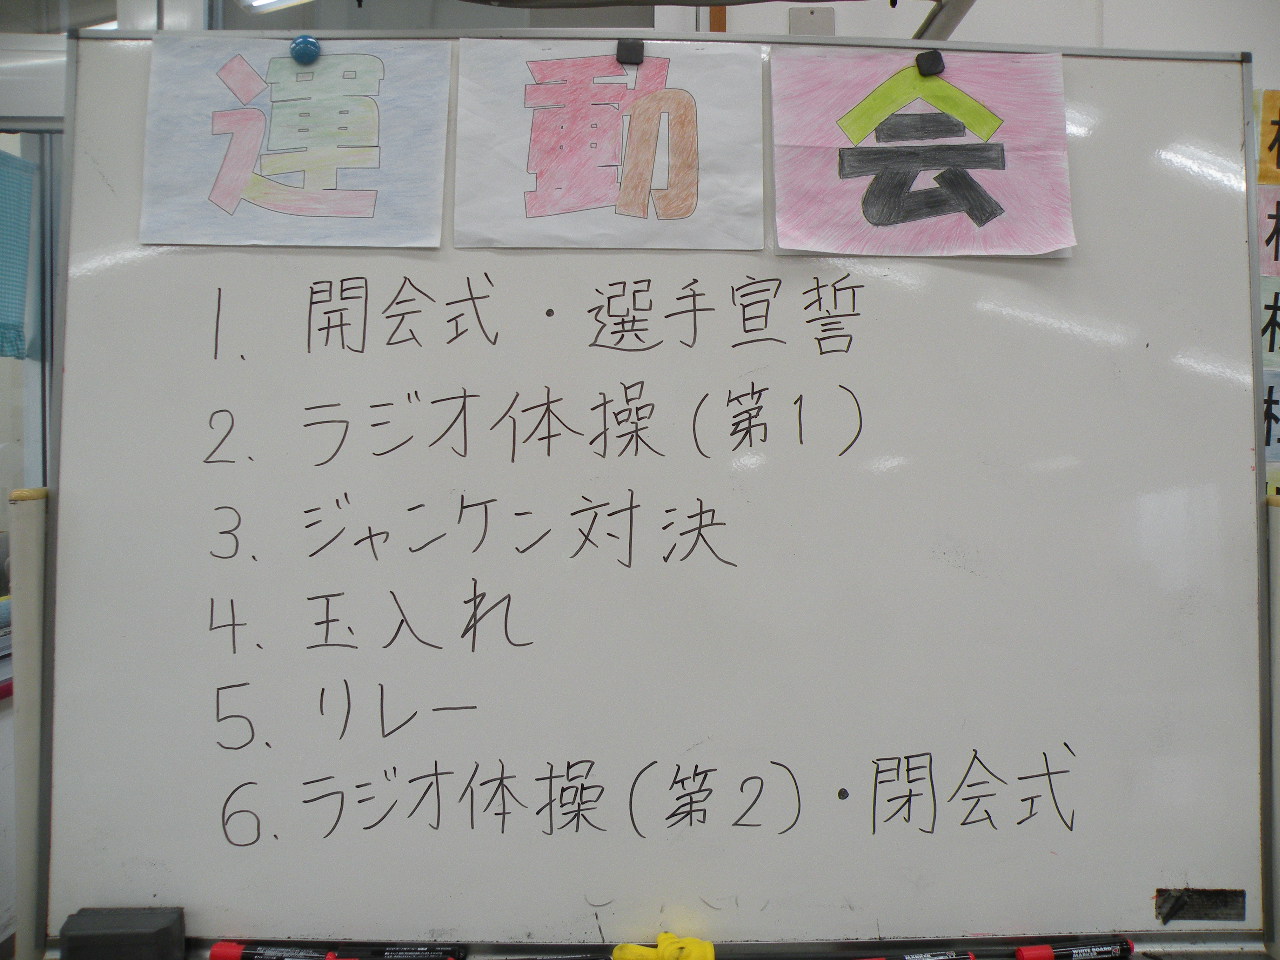 運動会
1. 開会式・選手宣誓
2. ラジオ体操(第1)
3. ジャンケン対決
4. 玉入れ
5. リレー
6. ラジオ体操(第2)・閉会式
WHITE BOARD MARKER